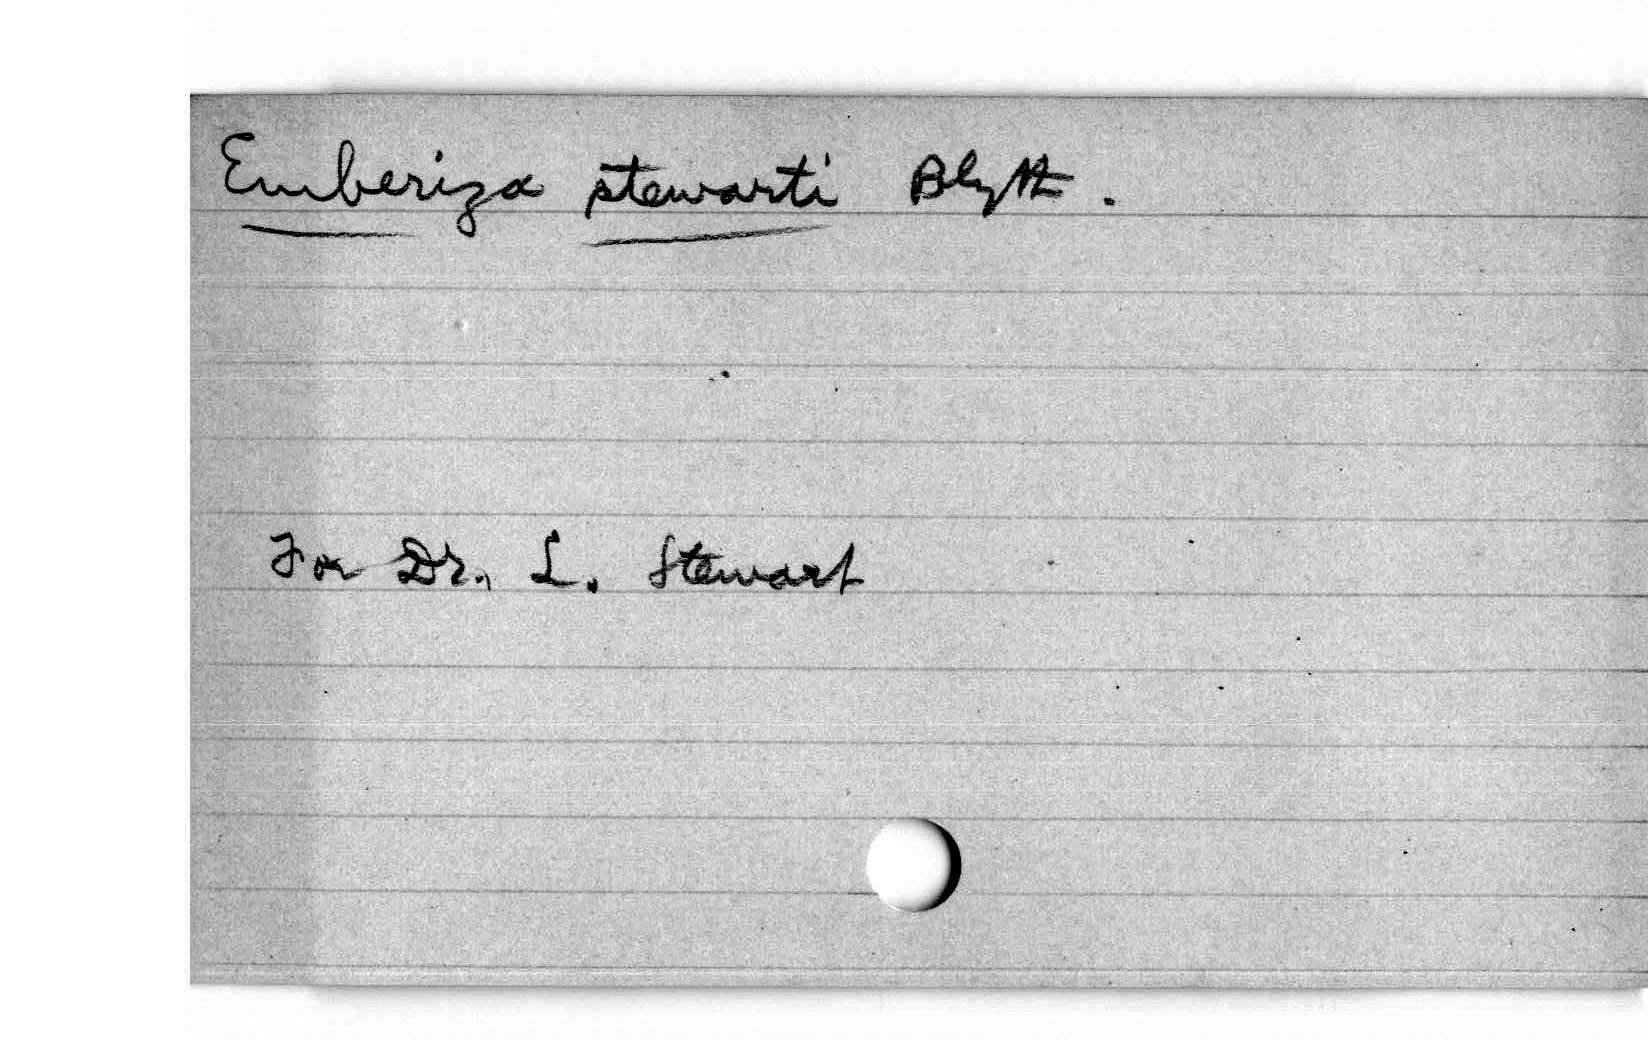 Emberiza stewarti Blyth.
For Dr. L. Stewart